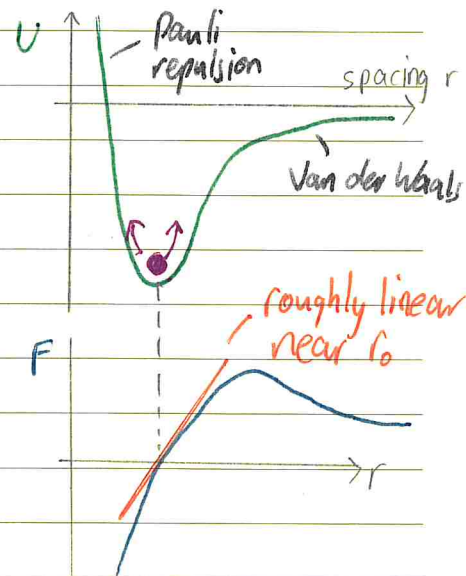 U
Pauli
repulsion
spacing r
Van der Waals
roughly linear
near r₀
F
r